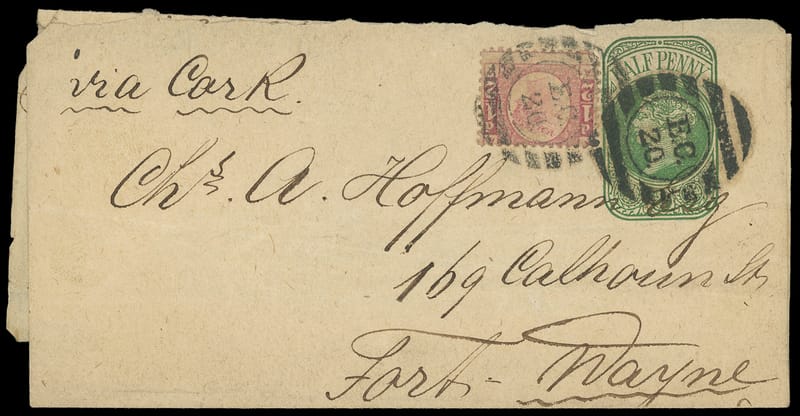 via Cork.
HALF PENNY
E.C
20
E.C
20
Chs. A. Hoffmann Esq
169 Calhoun St,
Fort-Wayne